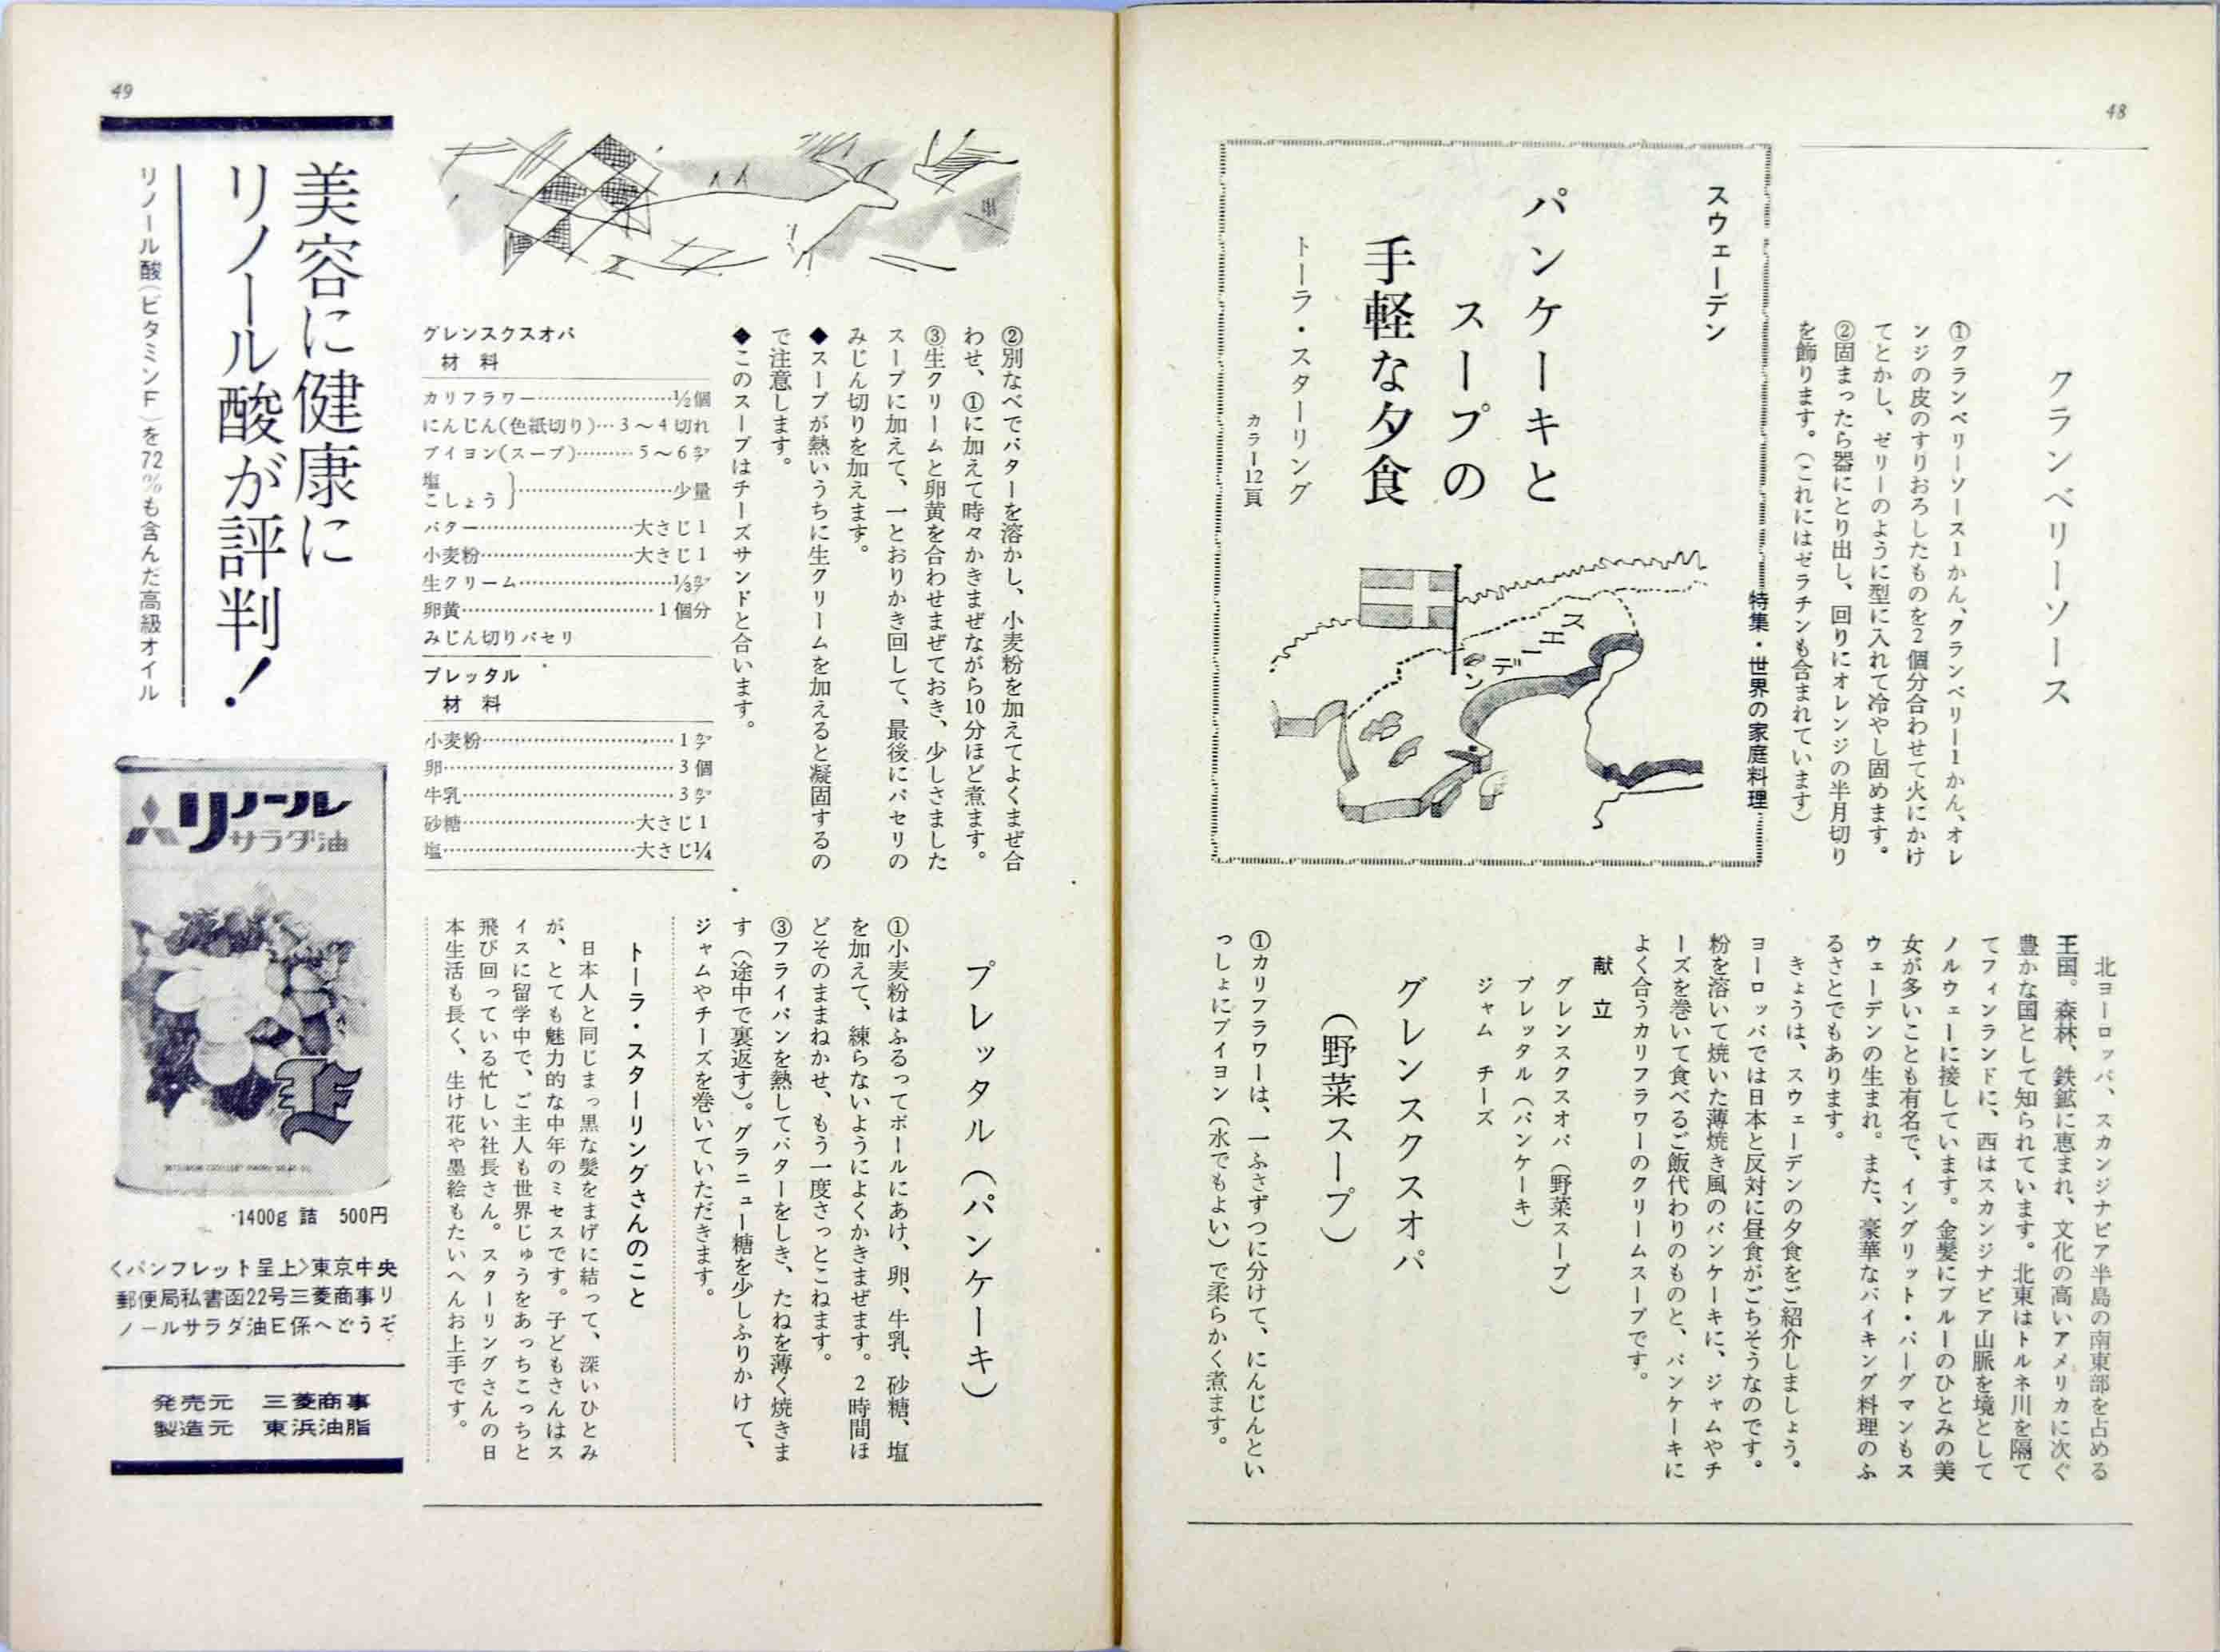 48
クランベリーソース
①クランベリーソース1かん、クランベリー1かん、オレ
ンジの皮のすりおろしたものを2個分合わせて火にかけ
てとかし、ゼリーのように型に入れて冷やし固めます。
②固まったら器にとり出し、回りにオレンジの半月切り
を飾ります。(これにはゼラチンも含まれています)
特集・世界の家庭料理
スウェーデン
パンケーキと
スープの
手軽な夕食
トーラ・スターリング
カラー12頁
スエーデン
北ヨーロッパ、スカンジナビア半島の南東部を占める
王国。森林、鉄鉱に恵まれ、文化の高いアメリカに次ぐ
豊かな国として知られています。北東はトルネ川を隔て
てフィンランドに、西はスカンジナビア山脈を境として
ノルウェーに接しています。金髪にブルーのひとみの美
女が多いことも有名で、イングリット・バーグマンもス
ウェーデンの生まれ。また、豪華なバイキング料理のふ
るさとでもあります。
きょうは、スウェーデンの夕食をご紹介しましょう。
ヨーロッパでは日本と反対に昼食がごちそうなのです。
粉を溶いて焼いた薄焼き風のパンケーキに、ジャムやチ
ーズを巻いて食べるご飯代わりのものと、パンケーキに
よく合うカリフラワーのクリームスープです。
献立
グレンスクスオパ(野菜スープ)
プレッタル(パンケーキ)
ジャム チーズ
グレンスクスオパ
(野菜スープ)
①カリフラワーは、一ふさずつに分けて、にんじんとい
っしょにブイヨン(水でもよい)で柔らかく煮ます。
②別なべでバターを溶かし、小麦粉を加えてよくまぜ合
わせ、①に加えて時々かきまぜながら10分ほど煮ます。
③生クリームと卵黄を合わせまぜておき、少しさました
スープに加えて、一とおりかき回して、最後にパセリの
みじん切りを加えます。
◆スープが熱いうちに生クリームを加えると凝固するの
で注意します。
◆このスープはチーズサンドと合います。
グレンスクスオパ
材料
カリフラワー……½個
にんじん(色紙切り)…3〜4切れ
ブイヨン(スープ)……5〜6カップ
塩
こしょう}……少量
バター……大さじ1
小麦粉……大さじ1
生クリーム……⅓カップ
卵黄……1個分
みじん切りパセリ
プレッタル
材料
小麦粉……1カップ
卵……3個
牛乳……3カップ
砂糖……大さじ1
塩……大さじ¼
プレッタル(パンケーキ)
①小麦粉はふるってボールにあけ、卵、牛乳、砂糖、塩
を加えて、練らないようによくかきまぜます。2時間ほ
どそのままねかせ、もう一度さっとこねます。
③フライパンを熱してバターをしき、たねを薄く焼きま
す(途中で裏返す)。グラニュー糖を少しふりかけて、
ジャムやチーズを巻いていただきます。
トーラ・スターリングさんのこと
日本人と同じまっ黒な髪をまげに結って、深いひとみ
が、とても魅力的な中年のミセスです。子どもさんはス
イスに留学中で、ご主人も世界じゅうをあっちこっちと
飛び回っている忙しい社長さん。スターリングさんの日
本生活も長く、生け花や墨絵もたいへんお上手です。
49
美容に健康に
リノール酸が評判!
リノール酸(ビタミンF)を72%も含んだ高級オイル
リノール
サラダ油
1400g 詰 500円
〈パンフレット呈上〉東京中央
郵便局私書函22号三菱商事リ
ノールサラダ油E係へどうぞ
発売元 三菱商事
製造元 東浜油脂